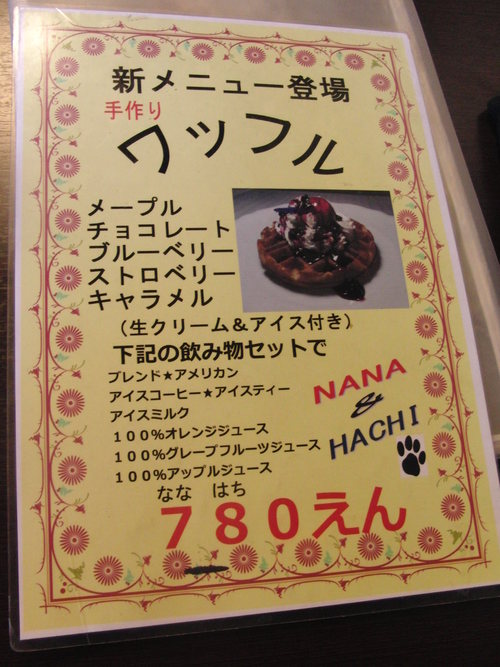 新メニュー登場
手作り
ワッフル
メープル
チョコレート
ブルーベリー
ストロベリー
キャラメル
（生クリーム＆アイス付き）
下記の飲み物セットで
ブレンド★アメリカン
アイスコーヒー★アイスティー
アイスミルク
１００％オレンジジュース
１００％グレープフルーツジュース
１００％アップルジュース
NANA
&
HACHI
なな　はち
７８０えん